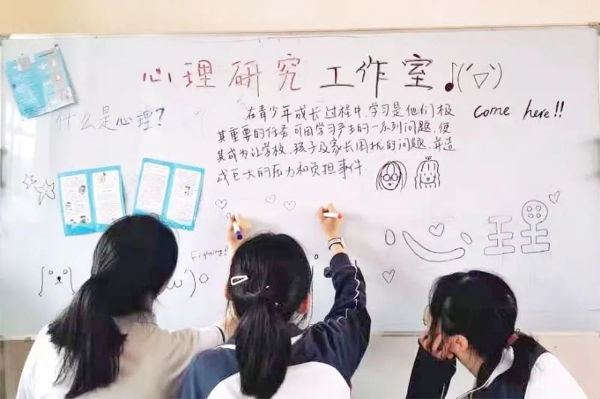 心理研究工作室
什么是心理?
在青少年成长过程中,学习是他们极
其重要的任务,可因学习产生的一系列问题,使
其成为让学校、孩子及家长困扰的问题,并造
成巨大的压力和负担事件
come here!!
Fighting!
心理